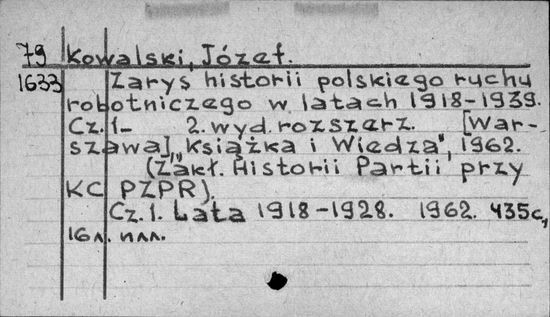 79 Kowalski, Józef.
1633 Zarys historii polskiego ruchu
robotniczego w latach 1918-1939.
Cz. 1- 2. wyd. rozszerz. [War-
szawa], "Książka i Wiedza", 1962.
(Zakł. Historii Partii przy
KC PZPR).
Cz. 1. Lata 1918-1928. 1962. 435 с.,
16 л. илл.